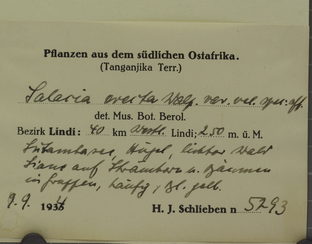 Pflanzen aus dem südlichen Ostafrika.
(Tanganjika Terr.)
Salacia erecta Walp. var. vel. spec. aff.
det. Mus. Bot. Berol.
Bezirk Lindi: 40 km westl. Lindi; 250 m. ü. M.
Hügel, lichter Wald
Liane auf Sträuchern u. Bäumen
in Gruppen, häufig, Bl. gelb.
9.9. 1934 H. J. Schlieben n 5293